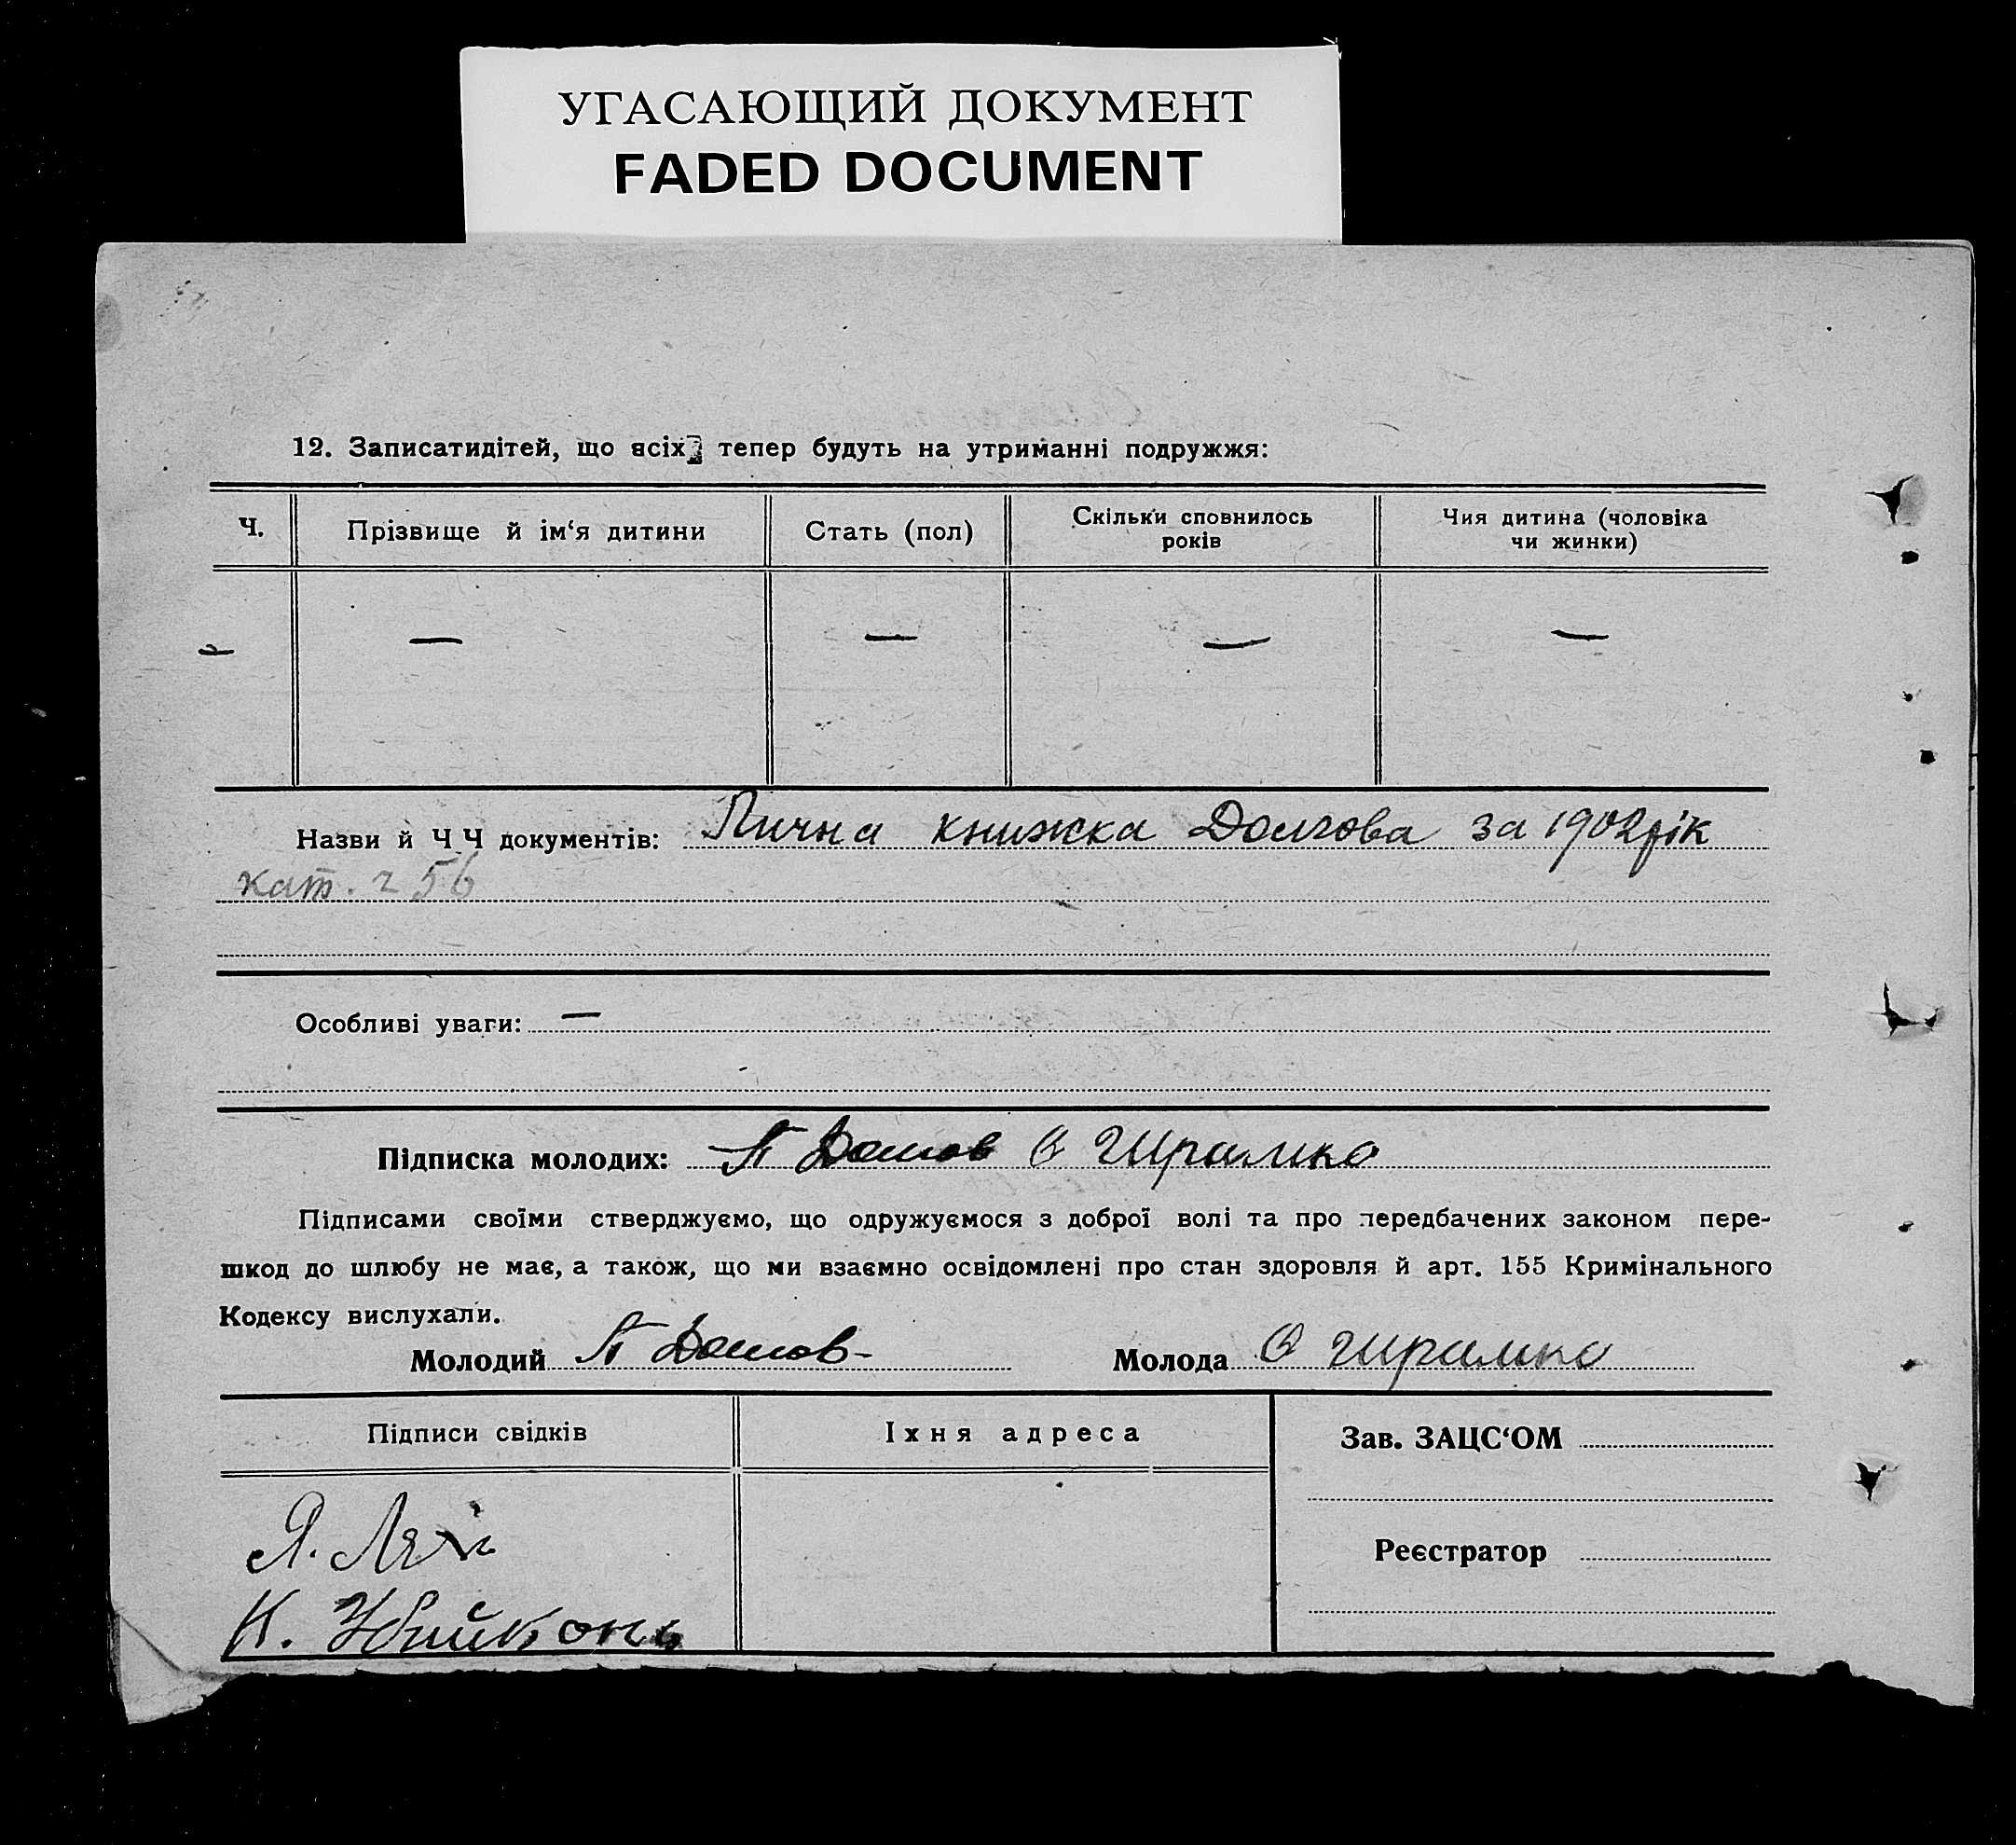 УГАСАЮЩИЙ ДОКУМЕНТ
FADED DOCUMENT
12. Записатидітей, що всіх тепер будуть на утриманні подружжя:
Ч. Прізвище й ім‘я дитини Стать (пол) Скільки сповнилось років Чия дитина (чоловіка чи жинки)
— — — —
Назви й Ч Ч документів: Лична книжка Долгова за 1902 рік
кат. г 56
Особливі уваги: —
Підписка молодих: П Долгов О
Підписами своїми стверджуємо, що одружуємося з доброї волі та про передбачених законом пере-
шкод до шлюбу не має, а також, що ми взаємно освідомлені про стан здоровля й арт. 155 Кримінального
Кодексу вислухали.
Молодий П Долгов Молода О
Підписи свідків Їхня адреса Зав. ЗАЦС‘ОМ
Реєстратор
Я.
К. Убийконь